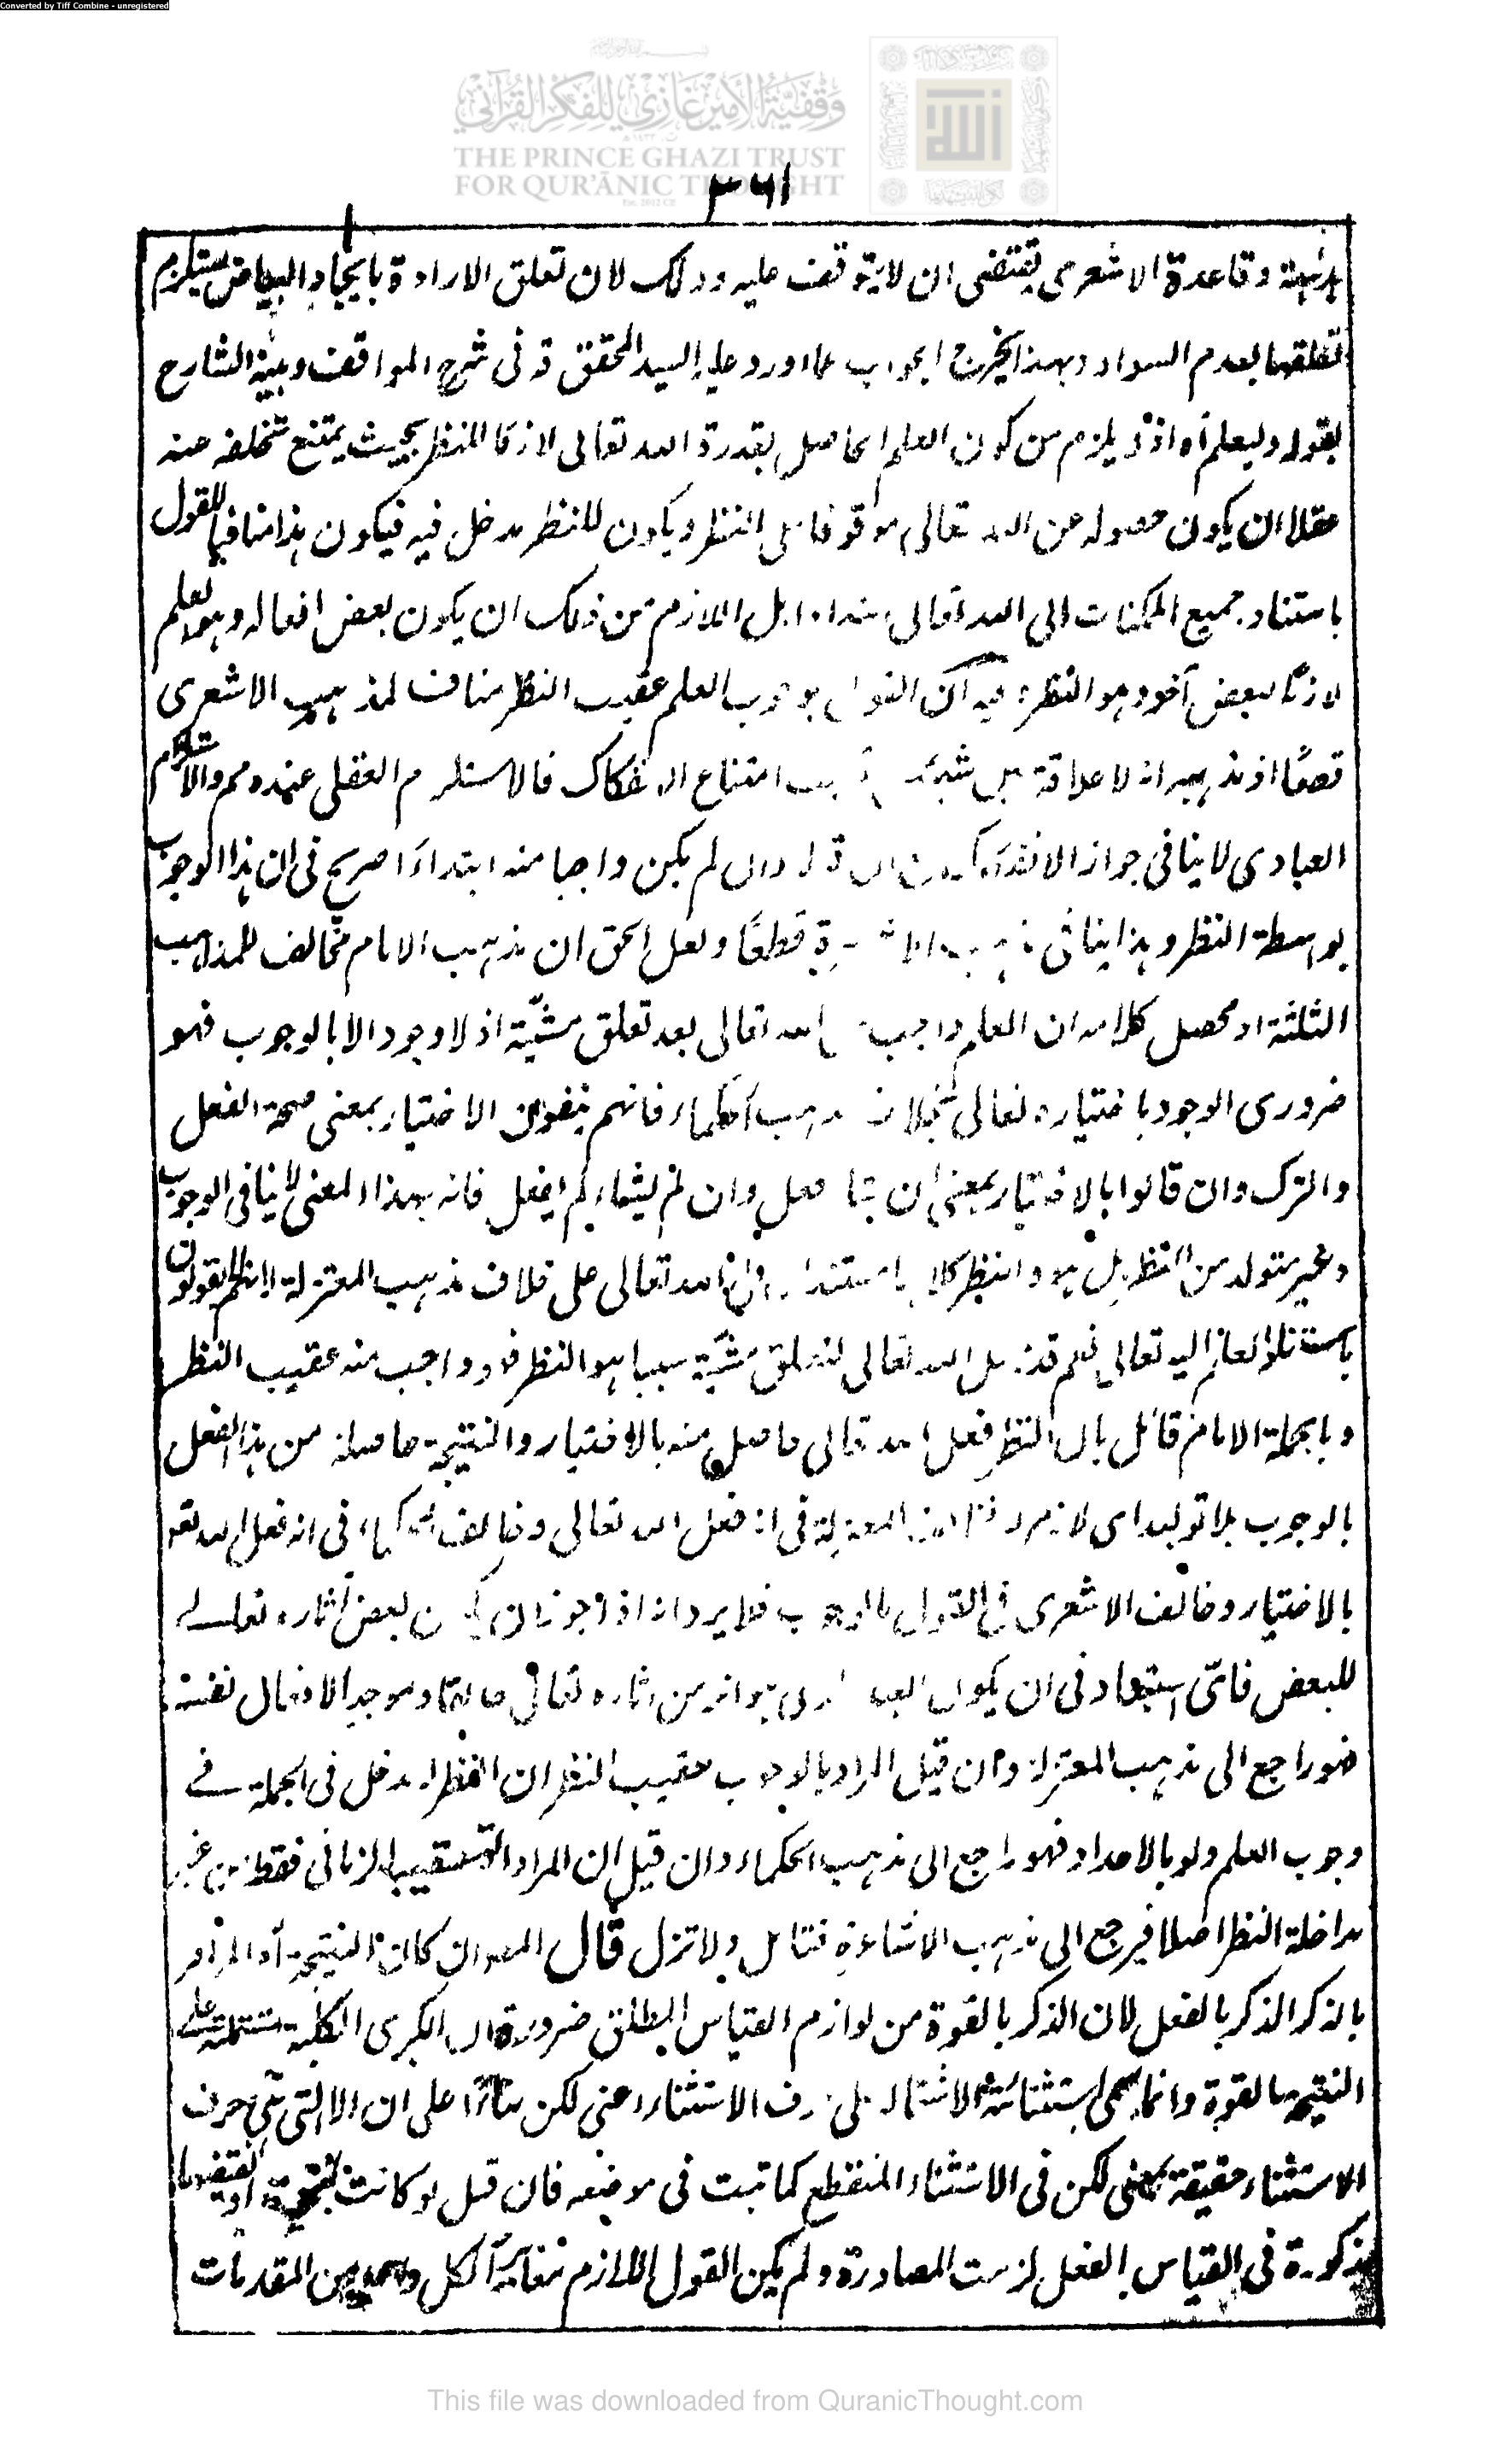 Converted by Tiff Combine - unregistered
وقفية الأمير غازي للفكر القرآني
THE PRINCE GHAZI TRUST
FOR QUR'ĀNIC THOUGHT
٣٦١
وقاعدة الاشعرى يقتضى ان لا يتوقف عليه وذلك لان تعلق الارادة بايجاد البياض يستلزم
تعلقها بعدم السواد وبهذا يخرج الجواب عما اورد عليه السيد المحقق قد فى شرح المواقف وبينه الشارح
بقوله وليعلم اه اذ لا يلزم من كون العلم الحاصل بقدرة الله تعالى لازما للنظر بحيث يمتنع تخلفه عنه
عقلا ان يكون حصوله عن الله تعالى موقوفا على النظر ويكون للنظر مدخل فيه فيكون هذا منافيا للقول
باستناد جميع الممكنات الى الله تعالى ابتداء بل اللازم من ذلك ان يكون بعض افعاله وهو العلم
لازما لبعض آخر وهو النظر فيه ان القول بوجوب العلم عقيب النظر مناف لمذهب الاشعرى
قطعًا اذ مذهبه انه لا علاقة بين امتناع الانفكاك فالاستلزام العقلى عنده مم والاستلزام
العادى لا ينافى جواز الانفكاك وان لم يكن واجبا منه ابتداءً صريح فى ان هذا الوجوب
بواسطة النظر وهذا ينافى مذهب الاشاعرة قطعًا ولعل الحق ان مذهب الامام مخالف للمذاهب
الثلثة اذ محصل كلامه ان العلم واجب الله تعالى بعد تعلق مشيّة اذ لا وجود الا بالوجوب فهو
ضرورى الوجود باختياره تعالى بخلاف مذهب الحكماء فانهم ينفون الاختيار بمعنى صحة الفعل
والترك وان قالوا بالاختيار بمعنى ان شاء فعل وان لم يشاء لم يفعل فانه بهذا المعنى لا ينافى الوجوب
وغير متولد من النظر بل هو والنظر كلاهما الله تعالى على خلاف مذهب المعتزلة فانهم لا يقولون
العلم اليه تعالى نعم قد جعل الله تعالى لتعلق مشيّة سببا هو النظر فهو واجب منه عقيب النظر
وبالجملة الامام قائل بان النظر فعل الله تعالى حاصل منه بالاختيار والنتيجة حاصلة من هذا الفعل
بالوجوب بلا توليد اى لازم المعتزلة فى انه فعل الله تعالى وخالف الحكماء فى انه فعل الله تعـ
بالاختيار وخالف الاشعرى فى القول بالوجوب فلا يرد انه اذا جوز ان يكون بعض آثاره تعالى
للبعض فاىّ استبعاد فى ان يكون العبد من آثاره تعالى موجد الافعال نفسه
فهو راجع الى مذهب المعتزلة وان قيل المراد بالوجوب عقيب النظر ان النظر له مدخل فى الجملة فى
وجوب العلم ولو بالاعداد فهو راجع الى مذهب الحكماء وان قيل ان المراد التعقيب الزمانى فقط من غير
مداخلة النظر اصلا فيرجع الى مذهب الاشاعرة فتامل ولا تزل قال المصـ ان كان النتيجة اه المراد
بالذكر الذكر بالفعل لان الذكر بالقوة من لوازم القياس المطلق ضرورة ان الكبرى الكلية مشتملة على
النتيجة بالقوة وانما سمى استثنائيا لاشتماله على حرف الاستثناء اعنى لكن بناءً على ان الا التى هى حرف
الاستثناء حقيقة بمعنى لكن فى الاستثناء المنقطع كما ثبت فى موضعه فان قيل لو كانت النتيجة او نقيضها
مذكورة فى القياس بالفعل لزمت المصادرة ولم يكن القول اللازم مغايرًا لكل من المقدمات
This file was downloaded from QuranicThought.com